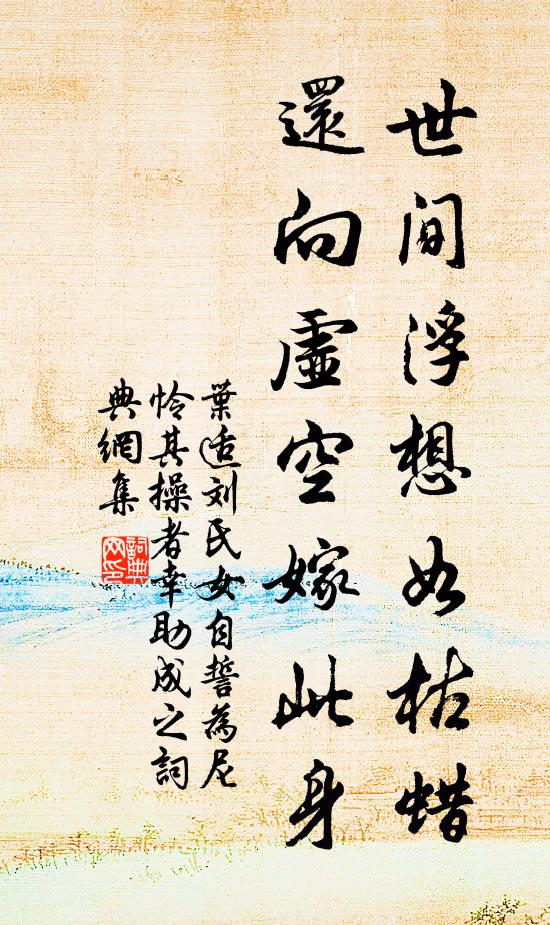 世间浮想如枯蜡
還向虛空嫁此身
葉适刘氏女自誓為尼
怜其操者幸助成之詞
典網集
詞典
网印